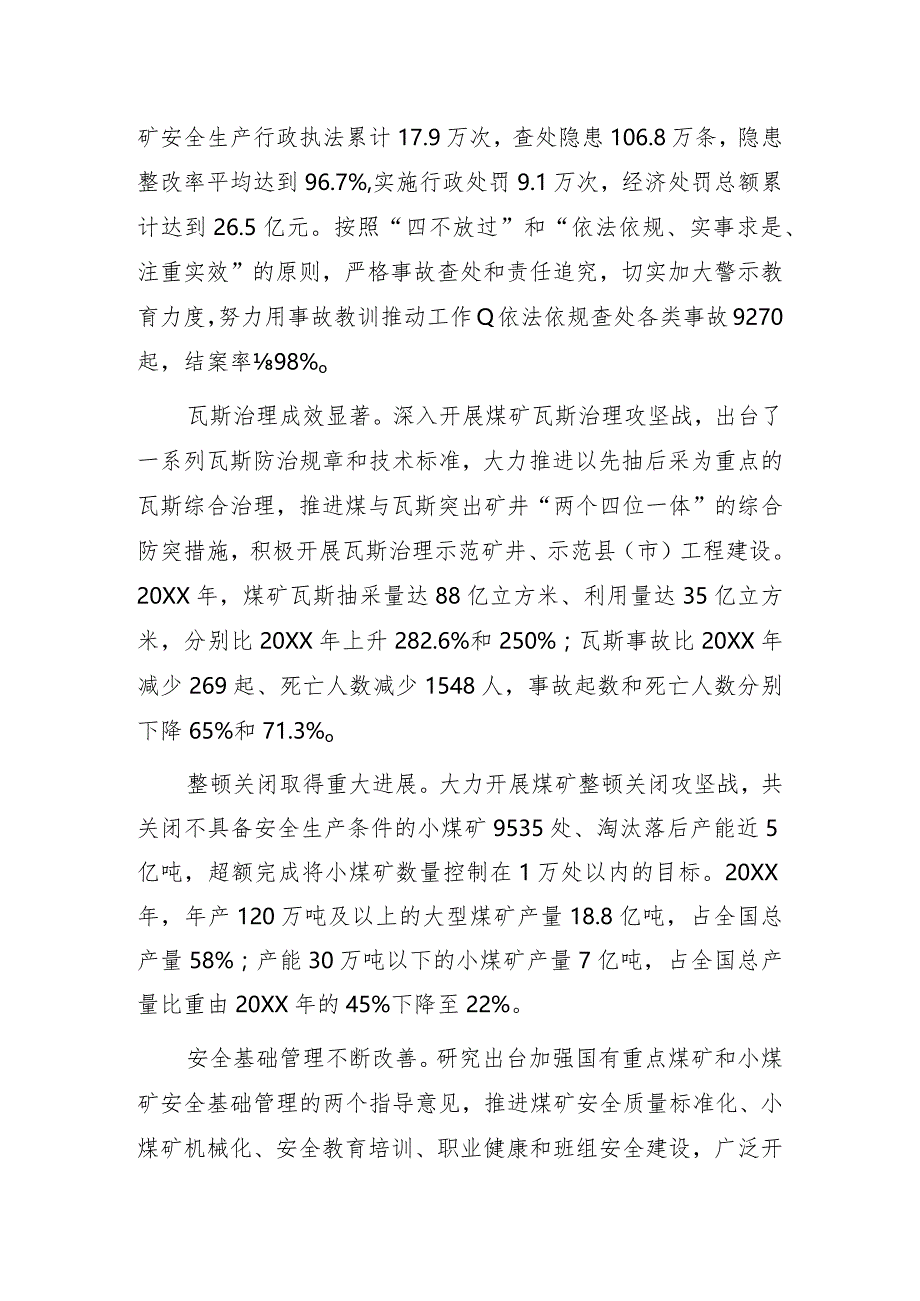 矿安全生产行政执法累计 17.9 万次，查处隐患 106.8 万条，隐患
整改率平均达到 96.7%,实施行政处罚 9.1 万次，经济处罚总额累
计达到 26.5 亿元。按照“四不放过”和“依法依规、实事求是、
注重实效”的原则，严格事故查处和责任追究，切实加大警示教
育力度，努力用事故教训推动工作 Q 依法依规查处各类事故 9270
起，结案率⅛98%。
瓦斯治理成效显著。深入开展煤矿瓦斯治理攻坚战，出台了
一系列瓦斯防治规章和技术标准，大力推进以先抽后采为重点的
瓦斯综合治理，推进煤与瓦斯突出矿井“两个四位一体”的综合
防突措施，积极开展瓦斯治理示范矿井、示范县（市）工程建设。
20XX 年，煤矿瓦斯抽采量达 88 亿立方米、利用量达 35 亿立方
米，分别比 20XX 年上升 282.6%和 250%；瓦斯事故比 20XX 年
减少 269 起、死亡人数减少 1548 人，事故起数和死亡人数分别
下降 65%和 71.3%。
整顿关闭取得重大进展。大力开展煤矿整顿关闭攻坚战，共
关闭不具备安全生产条件的小煤矿 9535 处、淘汰落后产能近 5
亿吨，超额完成将小煤矿数量控制在 1 万处以内的目标。20XX
年，年产 120 万吨及以上的大型煤矿产量 18.8 亿吨，占全国总
产量 58%；产能 30 万吨以下的小煤矿产量 7 亿吨，占全国总产
量比重由 20XX 年的 45%下降至 22%。
安全基础管理不断改善。研究出台加强国有重点煤矿和小煤
矿安全基础管理的两个指导意见，推进煤矿安全质量标准化、小
煤矿机械化、安全教育培训、职业健康和班组安全建设，广泛开